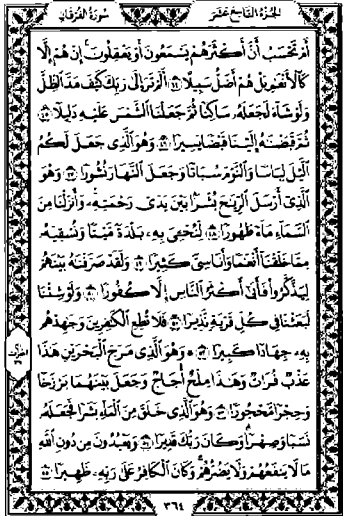 الجزء التاسع عشر سورة الفرقان
أم تحسب أن أكثرهم يسمعون أو يعقلون إن هم إلا
كالأنعم بل هم أضل سبيلا ٤٤ ألم تر إلى ربك كيف مد الظل
ولو شاء لجعله ساكنا ثم جعلنا الشمس عليه دليلا ٤٥
ثم قبضنه إلينا قبضا يسيرا ٤٦ وهو الذى جعل لكم
اليل لباسا والنوم سباتا وجعل النهار نشورا ٤٧ وهو
الذى أرسل الريح بشرا بين يدى رحمته وأنزلنا من
السماء ماء طهورا ٤٨ لنحۦى به بلدة ميتا ونسقيه
مما خلقنا أنعما وأناسى كثيرا ٤٩ ولقد صرفنه بينهم
ليذكروا فأبى أكثر الناس إلا كفورا ٥٠ ولو شئنا
لبعثنا فى كل قرية نذيرا ٥١ فلا تطع الكفرين وجهدهم
به جهادا كبيرا ٥٢ وهو الذى مرج البحرين هذا
عذب فرات وهذا ملح أجاج وجعل بينهما برزخا
وحجرا محجورا ٥٣ وهو الذى خلق من الماء بشرا فجعله
نسبا وصهرا وكان ربك قديرا ٥٤ ويعبدون من دون الله
ما لا ينفعهم ولا يضرهم وكان الكافر على ربه ظهيرا ٥٥
٣٦٤